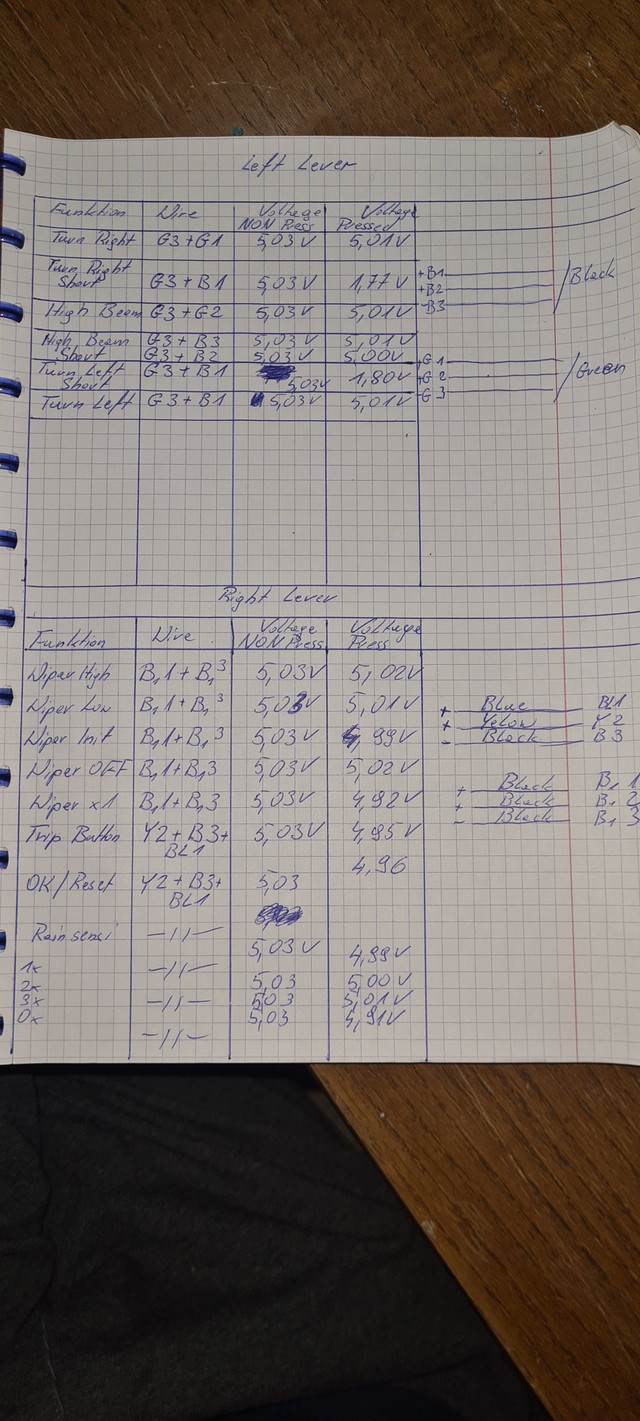 Left Lever
Funktion Wire Voltage NON Press Voltage Pressed
Turn Right G3+G1 5,03V 5,01V
Turn Right Short G3+B1 5,03V 1,77V
High Beam G3+G2 5,03V 5,01V
High Beam G3+B3 5,03V 5,01V
Short G3+B2 5,03V 5,00V
Turn Left Short G3+B1 5,03V 1,80V
Turn Left G3+B1 5,03V 5,01V
+B1
+B2
-B3
Black
+G1
+G2
-G3
Green
Right Lever
Funktion Wire Voltage NON Press Voltage Press
Wiper High B,1+B,3 5,03V 5,02V
Wiper Low B,1+B,3 5,03V 5,01V
Wiper Init B,1+B,3 5,03V 4,99V
Wiper OFF B,1+B,3 5,03V 5,02V
Wiper x1 B,1+B,3 5,03V 4,92V
Trip Button Y2+B3+BL1 5,03V 4,95V
OK/Reset Y2+B3+BL1 5,03 4,96
Rain sensi -//- 5,03V 4,99V
1x -//-
2x 5,03 5,00V
3x -//- 5,03 5,01V
0x 5,03 4,91V
-//-
+ Blue BL1
+ Yelow Y2
- Black B3
+ Black B,1
+ Black B,2
- Black B,3